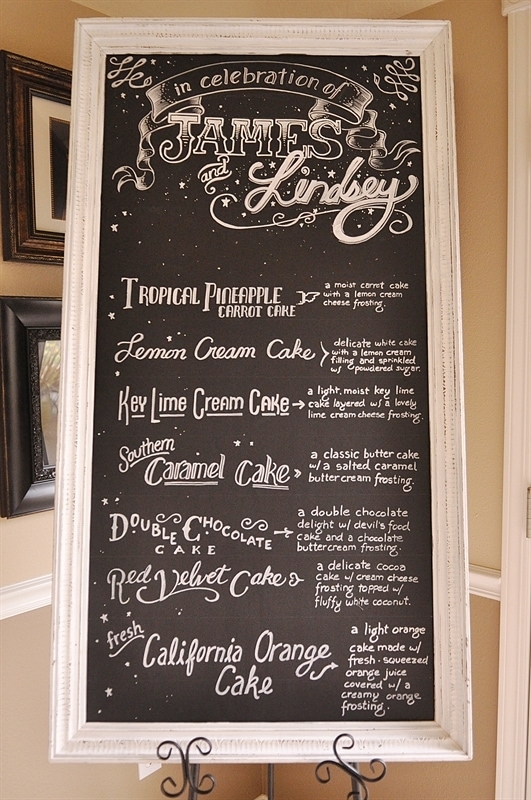 in celebration of
JAMES
and
Lindsey
TROPICAL PINEAPPLE
CARROT CAKE
a moist carrot cake
with a lemon cream
cheese frosting.
Lemon Cream Cake
delicate white cake
with a lemon cream
filling and sprinkled
w/ powdered sugar.
KEY LIME CREAM CAKE
a light, moist key lime
cake layered w/ a lovely
lime cream cheese frosting.
Southern
Caramel Cake
a classic butter cake
w/ a salted caramel
buttercream frosting.
DOUBLE CHOCOLATE
CAKE
a double chocolate
delight w/ devil's food
cake and a chocolate
buttercream frosting.
Red Velvet Cake
a delicate cocoa
cake w/ cream cheese
frosting topped w/
fluffy white coconut.
fresh
California Orange
Cake
a light orange
cake made w/
fresh-squeezed
orange juice
covered w/ a
creamy orange
frosting.